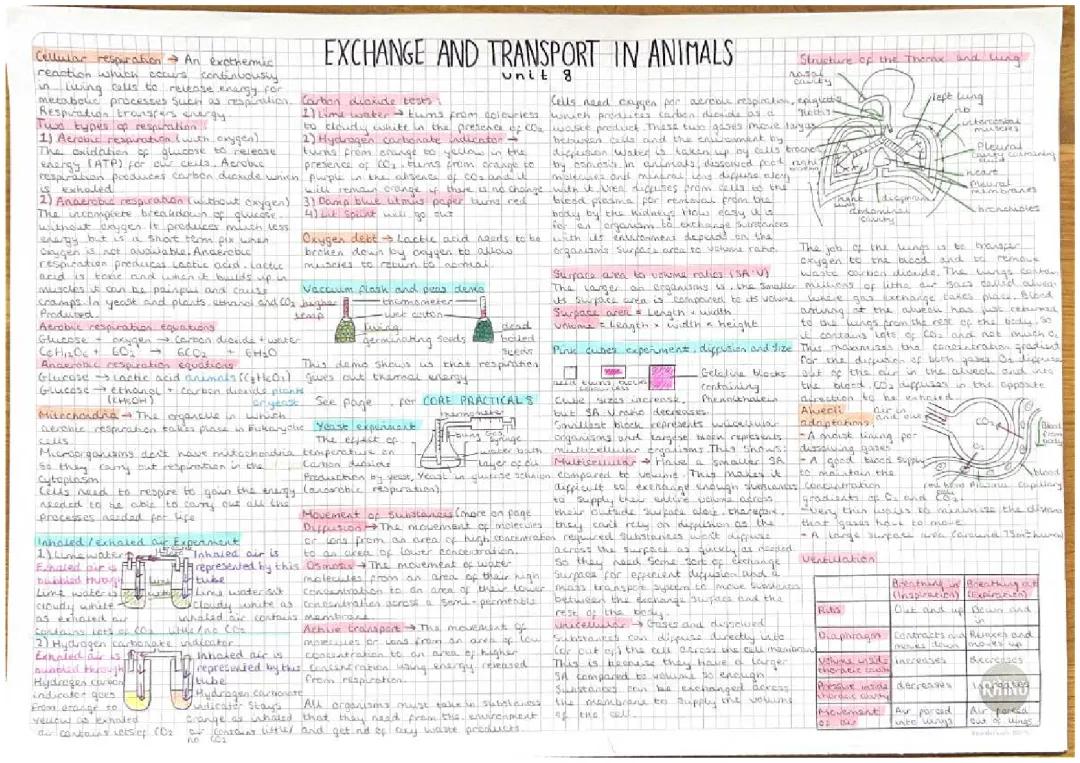 EXCHANGE AND TRANSPORT IN ANIMALS
unit 8
Cellular respiration → An exothermic
reaction which occurs continuously
in living cells to release energy for
metabolic processes such as respiration.
Respiration transfers energy
Two types of respiration:
1) Aerobic respiration (with oxygen)
The oxidation of glucose to release
energy (ATP) for our cells. Aerobic
respiration produces carbon dioxide which
is exhaled
2) Anaerobic respiration (without oxygen)
The incomplete breakdown of glucose
without oxygen. It produces much less
energy but is a short term fix when
oxygen is not available. Anaerobic
respiration produces lactic acid. Lactic
acid is toxic and when it builds up in
muscles it can be painful and cause
cramps. In yeast and plants, ethanol and CO2
produced.
Aerobic respiration equations
Glucose + oxygen → Carbon dioxide + water
C6H12O6 + 6O2 → 6CO2 + 6H2O
Anaerobic respiration equations
Glucose → Lactic acid animals (C3H6O3)
Glucose → Ethanol + Carbon dioxide plants
Mitochondria → The organelle in which
aerobic respiration takes place in Eukaryotic
cells.
Microorganisms don't have mitochondria
so they carry out respiration in the
cytoplasm
Cells need to respire to gain the energy
needed to be able to carry out all the
processes needed for life
Inhaled/exhaled air Experiment
1) Limewater
Exhaled air is
bubbled through
Lime water is
cloudy white
as exhaled air
contains lots of CO2
Inhaled air is
represented by this
tube
Lime water isn't
cloudy white as
inhaled air contains
little/no CO2
2) Hydrogen carbonate indicator
Exhaled air is
bubbled through
Hydrogen carbon
indicator goes
from orange to
yellow as exhaled
air contains lots of CO2
Inhaled air is
represented by this
tube
Hydrogen carbonate
indicator stays
orange as inhaled
air contains little/
no CO2
Carbon dioxide tests:
1) Lime water → turns from colourless
to cloudy white in the presence of CO2
2) Hydrogen carbonate indicator →
turns from orange to yellow in the
presence of CO2, turns from orange to
purple in the absence of CO2 and it
will remain orange if there is no change
3) Damp blue litmus paper turns red
4) Lit splint will go out
Oxygen debt → Lactic acid needs to be
broken down by oxygen to allow
muscles to return to normal
Vacuum flask and peas demo
higher
temp
thermometer
wet cotton
living
germinating seeds
dead
boiled
seeds
This demo shows us that respiration
gives out thermal energy
See page , for CORE PRACTICAL 8
Yeast experiment
The effect of
temperature on
Carbon dioxide
Production by yeast. Yeast in glucose solution
(anaerobic respiration)
thermometer
Gas
syringe
water bath
layer of oil
Movement of Substances (more on page
Diffusion → The movement of molecules
or ions from an area of high concentration
to an area of lower concentration.
Osmosis → The movement of water
molecules from an area of their high
concentration to an area of their lower
concentration across a semi-permeable
membrane
Active transport → The movement of
molecules or ions from an area of low
concentration to an area of higher
concentration using energy released
from respiration.
All organisms must take in substances
that they need from the environment
and get rid of any waste products.
Cells need oxygen for aerobic respiration,
which produces carbon dioxide as a
waste product. These two gases move
between cells and the environment by
diffusion. Water is taken up by cells
by osmosis in animals, dissolved food
molecules and mineral ions diffuse along
with it. Urea diffuses from cells to the
blood plasma for removal from the
body by the kidneys. How easy it is
for an organism to exchange substances
with its environment depends on the
organism's surface area to volume ratio.
Surface area to volume ratios (SA:V)
The larger an organism is, the smaller
its surface area is compared to its volume.
Surface area = Length × width
Volume = Length × width × height
Pink cubes experiment, diffusion and size
Gelatine blocks
containing
Phenolphthalein
Cube sizes increase,
but SA:V ratio decreases.
Smallest block represents unicellular
organisms and largest block represents
multicellular organisms. This shows:
Multicellular → Have a smaller SA
compared to volume. This makes it
difficult to exchange enough substances
to supply their entire volume across
their outside surface alone. Therefore,
they can't rely on diffusion as the
required substances won't diffuse
across the surface as quickly as needed.
So they need some sort of exchange
surface for efficient diffusion and a
mass transport system to move substances
between the exchange surface and the
rest of the body.
Unicellular → Gases and dissolved
substances can diffuse directly into
(or out of) the cell across the cell membrane
This is because they have a larger
SA compared to volume so enough
substances can be exchanged across
the membrane to supply the volume
of the cell.
Structure of the Thorax and lung
nasal
cavity
epiglottis
larynx
left lung
rib
intercostal
muscles
Pleural
cavity containing
fluid
heart
Pleural
membranes
bronchioles
diaphragm
abdominal
cavity
right
lung
The job of the lungs is to transfer
oxygen to the blood and to remove
waste carbon dioxide. The lungs contain
millions of little air sacs called alveoli
where gas exchange takes place. Blood
arriving at the alveoli has just returned
to the lungs from the rest of the body, so
it contains lots of CO2 and not much O2
This maximises the concentration gradient
for the diffusion of both gases. O2 diffuses
out of the air in the alveoli and into
the blood. CO2 diffuses in the opposite
direction to be exhaled.
Alveoli
adaptations
- A moist lining for
dissolving gases
- A good blood supply
to maintain the
concentration
gradients of O2 and CO2.
- Very thin walls to minimise the distance
that gases have to move.
- A large surface area (around 75m² human)
air in
and out
CO2
O2
Blood
from
body
blood
red blood
cell
Plasma
Capillary
Ventilation
Breathing in
(Inspiration)
Breathing out
(Expiration)
Ribs
Out and up
Down and
in
Diaphragm
Contracts and
moves down
Relaxes and
moves up
Volume inside
thoracic cavity
increases
decreases
Pressure inside
thoracic cavity
decreases
Increases
Movement
of air
Air forced
into lungs
Air forced
out of lungs